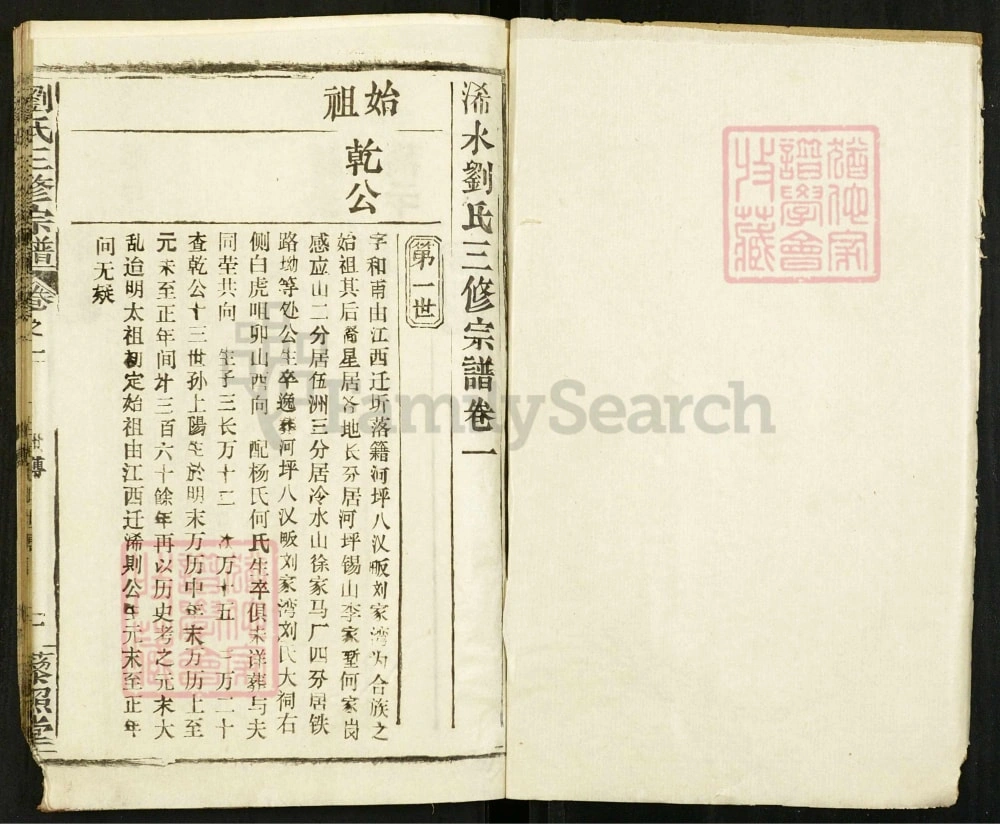 猶他家
譜學會
收藏
浠水劉氏三修宗譜卷一
第一世
始祖
乾公
字和甫由江西迁圻落籍河坪八汉畈刘家湾为合族之
始祖其后裔星居各地长分居河坪锡山李家塹何家岗
感应山二分居伍洲三分居冷水山徐家马厂四分居铁
路坳等处公生卒逸葬河坪八汉畈刘家湾刘氏大祠右
侧白虎咀卯山酉向 配杨氏何氏生卒俱未详葬与夫
同茔共向 生子三长万十二 次万十五 三万二十
查乾公十三世孙上陽生於明末万历中年末万历上至
元末至正年间计三百六十餘年再以历史考之元末大
乱迨明太祖初定始祖由江西迁浠则公生元末至正年
问无疑
劉氏三修宗譜 卷之一
世傳
FamilySearch